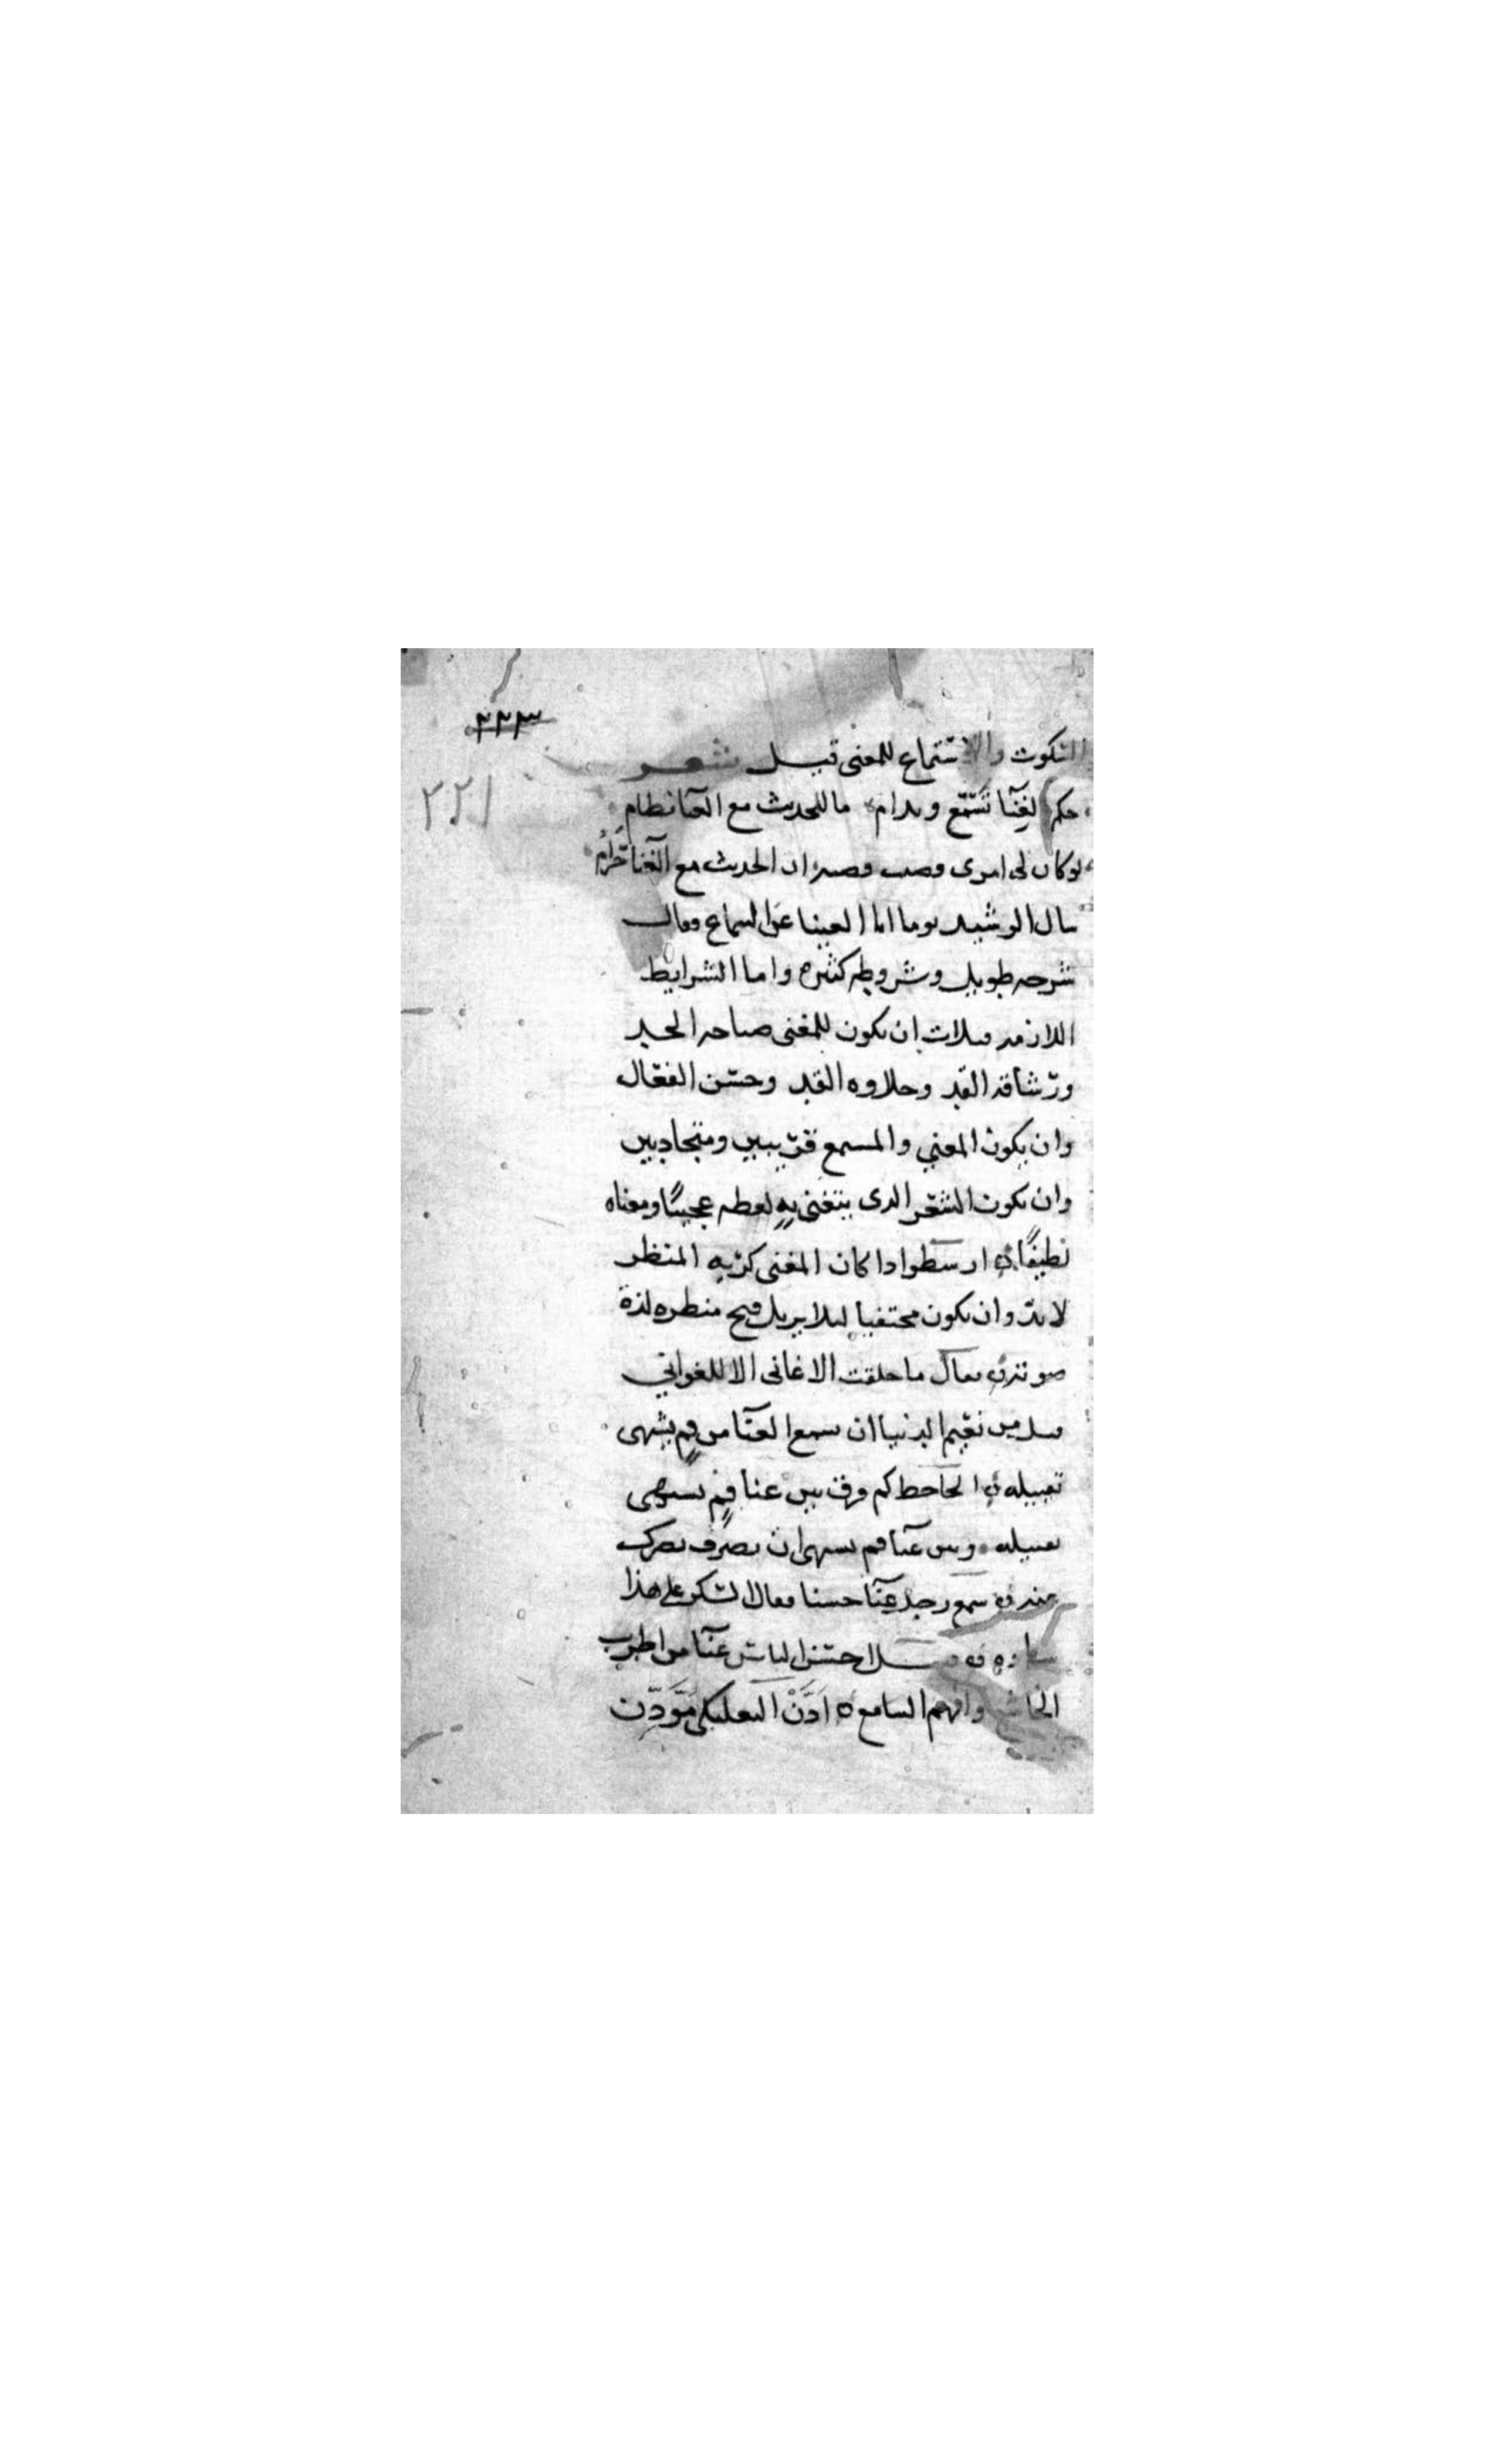 ٢٢٣
٢٢١
السكوت والاستماع للمغنى قيل شعر
حكم الغنآ تسمّع ومدام ما للحديث مع الغنا نظام
لو كان لى امرى قضيت قضية ان الحديث مع الغنآ حَرَامُ
سال الرشيد يوما ابا العينا عن السماع وقال
شرحه طويل وشروطه كثيره واما الشرايط
اللازمه فثلاث ان يكون للمغنى صباحه الخد
ورشاقه القد وحلاوه وحسن الفعال
وان يكون المغني والمسمع قريبين ومتجاذبين
وان يكون الشعر الدى يتغنى بهِ لفظه عجيبًا ومعناه
لطيفًا ارسطو ادا كان المغنى كريه المنظر
لا بد وان يكون مختفيا ليلا يزيل قبح منطره لذة
صوته يقال ما خلقت الاغانى الا للغواني
قيل من نعيم الدنيا ان تسمع الغنآ من فمٍ يشتهى
تقبيله الجاحط كم فرق بين غنا فمٍ تشتهى
تقبيله وبين غنآ فم تشتهى ان تصرف بصرك
عنه سمع رجل غنآ حسنا فقال السكر على هذا
احسن الناس غنآ من اطرب
الخاشع وافهم السامع اَدَّنْ البعلبكى مَوَدّن